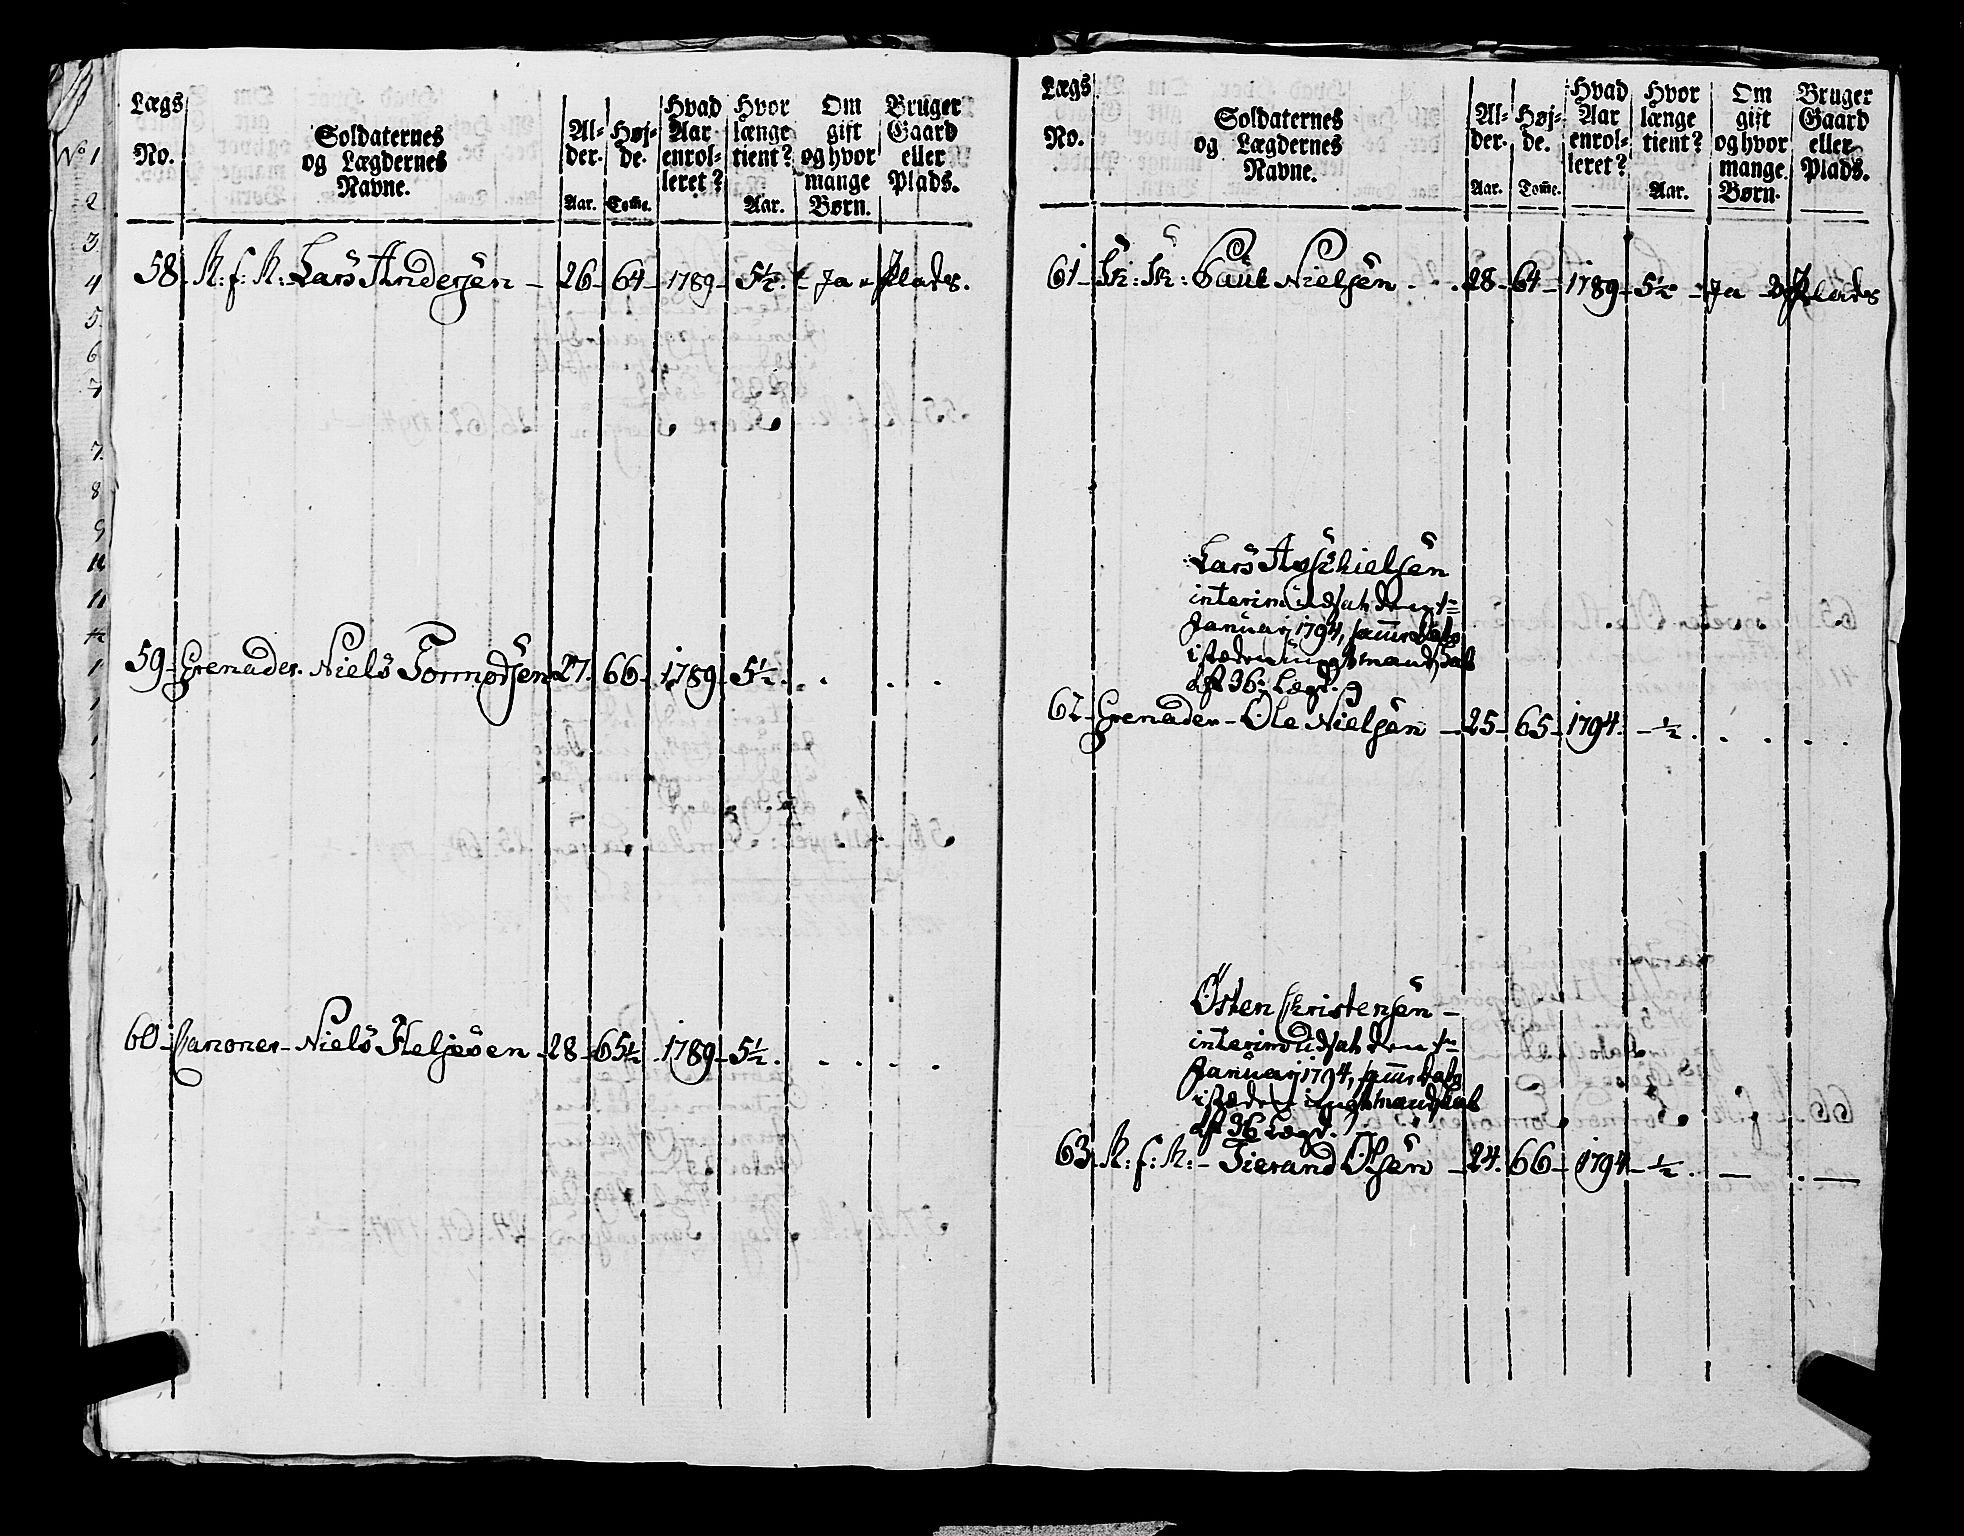 Lægs No.
Soldaternes og Lægdernes Navne.
Al-der. Aar.
Høj-de. Tome.
Hvad Aar enrol-leret?
Hvor længe tient? Aar.
Om gift og hvor mange Børn.
Bruger Gaard eller Plads.
58. R: f: R: Lars Andersen - 26 - 64 - 1789 - 5½. - Ja - Plads.
59 - Grenader. Niels Tormodsen 27. 66 - 1789 - 5½.
60 - Canoner - Niels Heljesen - 28 - 65½ - 1789 - 5½.
Lægs No.
Soldaternes og Lægdernes Navne.
Al-der. Aar.
Høj-de. Tome.
Hvad Aar enrol-leret?
Hvor længe tient? Aar.
Om gift og hvor mange Børn.
Bruger Gaard eller Plads.
61 - Sk: Sk: Paul Nielsen . . . 28 - 64 - 1789 - 5½ - Ja - Plads
Lars
interim udsat den 1te
Januarj 1794,
i stæden
aft 36: Lægd.
62 - Grenader - Ole Nielsen - 25 - 65 - 1794. - ½.
Østen Kristensen -
interim udsat den 1te
Januarj 1794,
i stæden
aft 36 Lægd.
63. R: f: R: - Tierand Olsen - 24. 66 - 1794 - ½. -
No 1
2
3
4
5
6
7
7
8
9
10
11
1
1
1
1